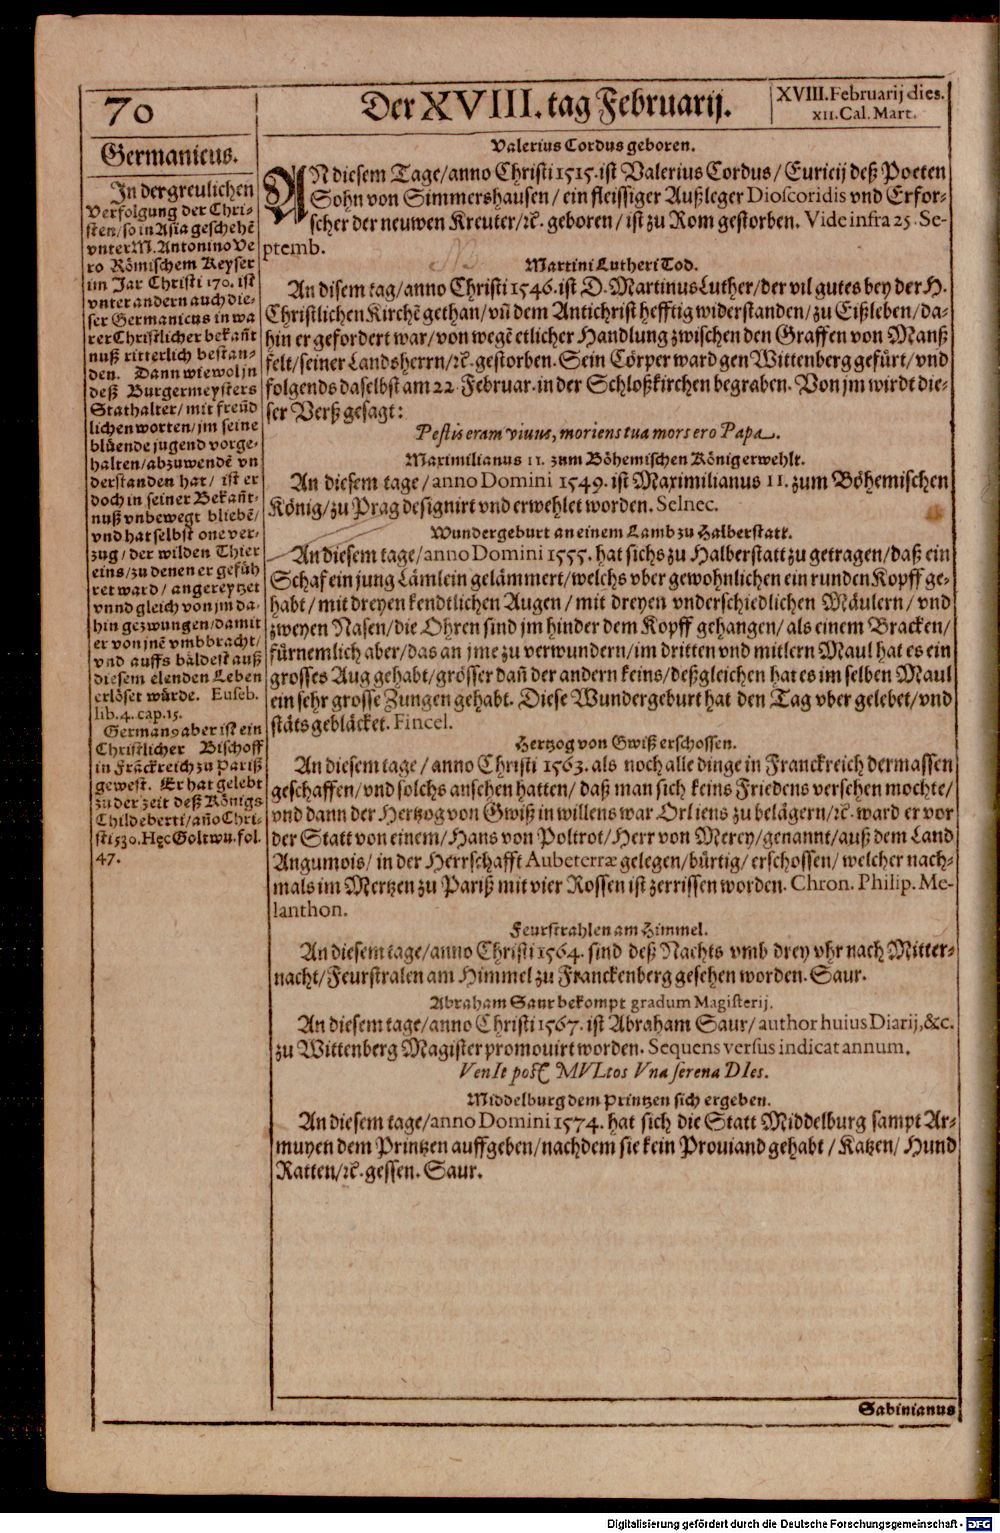 70
Der XVIII. tag Februarij.
XVIII. Februarij dies.
XII. Cal. Mart.
Germanicus.
In der greulichen
Verfolgung der Chri-
sten/so in Asia geschehẽ
vnter M. Antonino Ve
ro Römischem Keyser
im Jar Christi 170. ist
vnter andern auch die-
ser Germanicus in wa
rer Christlicher bekañt
nuß ritterlich bestan-
den. Dann wiewol jn
deß Burgermeysters
Stathalter/ mit freũd
lichen worten/jm seine
blüende jugend vorge-
halten/abzuwendẽ vn
derstanden hat/ ist er
doch in seiner Bekañt-
nuß vnbewegt bliebẽ/
vnd hat selbst one ver-
zug/ der wilden Thier
eins/zu denen er gefüh
ret ward/ angereytzet
vnnd gleich von jm da-
hin gezwungen/damit
er von jnẽ vmbbracht/
vnd auffs bäldest auß
diesem elenden Leben
erlöset würde. Euseb.
lib. 4. cap. 15.
Germanꝰ aber ist ein
Christlicher Bischoff
in Frãckreich zu Pariß
gewest. Er hat gelebt
zu der zeit deß Königs
Childeberti/ año Chri-
sti 530. Hęc Goltwu. fol.
47.
Valerius Cordus geboren.
AN diesem Tage/anno Christi 1515. ist Valerius Cordus/ Euricij deß Poeten
Sohn von Simmershausen/ ein fleissiger Außleger Dioscoridis vnd Erfor-
scher der neuwen Kreuter/ꝛc. geboren/ ist zu Rom gestorben. Vide infra 25. Se-
ptemb.
Martini Lutheri Tod.
An disem tag/anno Christi 1546. ist D. Martinus Luther/der vil gutes bey der H.
Christlichen Kirchẽ gethan/vñ dem Antichrist hefftig widerstanden/zu Eißleben/da-
hin er gefordert war/von wegẽ etlicher Handlung zwischen den Graffen von Manß
felt/seiner Landsherrn/ꝛc. gestorben. Sein Cörper ward gen Wittenberg gefürt/vnd
folgends daselbst am 22. Februar. in der Schloßkirchen begraben. Von jm wirdt die-
ser Verß gesagt:
Pestis eram vivus, moriens tua mors ero Papa.
Maximilianus II. zum Böhemischen König erwehlt.
An diesem tage/anno Domini 1549. ist Maximilianus II. zum Böhemischen
König/zu Prag designirt vnd erwehlet worden. Selnec.
Wundergeburt an einem Lamb zu Halberstatt.
An diesem tage/anno Domini 1555. hat sichs zu Halberstatt zu getragen/daß ein
Schaf ein jung Lämlein gelämmert/welchs vber gewohnlichen ein runden Kopff ge-
habt/ mit dreyen kendtlichen Augen/ mit dreyen vnderschiedlichen Mäulern/ vnd
zweyen Nasen/die Ohren sind jm hinder dem Kopff gehangen/ als einem Bracken/
fürnemlich aber/das an jme zu verwundern/im dritten vnd mitlern Maul hat es ein
grosses Aug gehabt/grösser dañ der andern keins/deßgleichen hat es im selben Maul
ein sehr grosse Zungen gehabt. Diese Wundergeburt hat den Tag vber gelebet/vnd
stäts gebläcket. Fincel.
Hertzog von Gwiß erschossen.
An diesem tage/ anno Christi 1563. als noch alle dinge in Franckreich dermassen
geschaffen/vnd solchs ansehen hatten/ daß man sich keins Friedens versehen mochte/
vnd dann der Hertzog von Gwiß in willens war Orliens zu belägern/ꝛc. ward er vor
der Statt von einem/Hans von Poltrot/Herr von Mercy/genannt/auß dem Land
Angumois/ in der Herrschafft Aubeterræ gelegen/bürtig/ erschossen/ welcher nach-
mals im Mertzen zu Pariß mit vier Rossen ist zerrissen worden. Chron. Philip. Me-
lanthon.
Feurstrahlen am Himmel.
An diesem tage/anno Christi 1564. sind deß Nachts vmb drey vhr nach Mitter-
nacht/Feurstralen am Himmel zu Franckenberg gesehen worden. Saur.
Abraham Saur bekompt gradum Magisterij.
An diesem tage/anno Christi 1567. ist Abraham Saur/ author huius Diarij, &c.
zu Wittenberg Magister promouirt worden. Sequens versus indicat annum.
VenIt post MVLtos Vna serena DIes.
Middelburg dem Printzen sich ergeben.
An diesem tage/anno Domini 1574. hat sich die Statt Middelburg sampt Ar-
muyen dem Printzen auffgeben/nachdem sie kein Prouiand gehabt/ Katzen/ Hund
Ratten/ꝛc. gessen. Saur.
Sabinianus
Digitalisierung gefördert durch die Deutsche Forschungsgemeinschaft - DFG